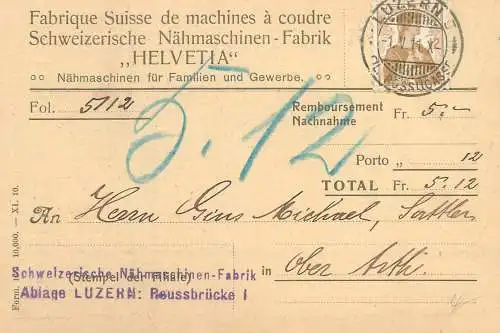 Fabrique Suisse de machines à coudre
Schweizerische Nähmaschinen-Fabrik
„HELVETIA“
Nähmaschinen für Familien und Gewerbe.
LUZERN
Fol. 5112
Remboursement
Nachnahme Fr. 5.-
5.12
Porto „ 12
TOTAL Fr. 5.12
An Herrn Michael, Sattler
in Ober Arth.
(Stempel der Filiale)
Schweizerische Nähmaschinen-Fabrik
Ablage LUZERN: Reussbrücke I
Form. 10,000. — XI. 10.